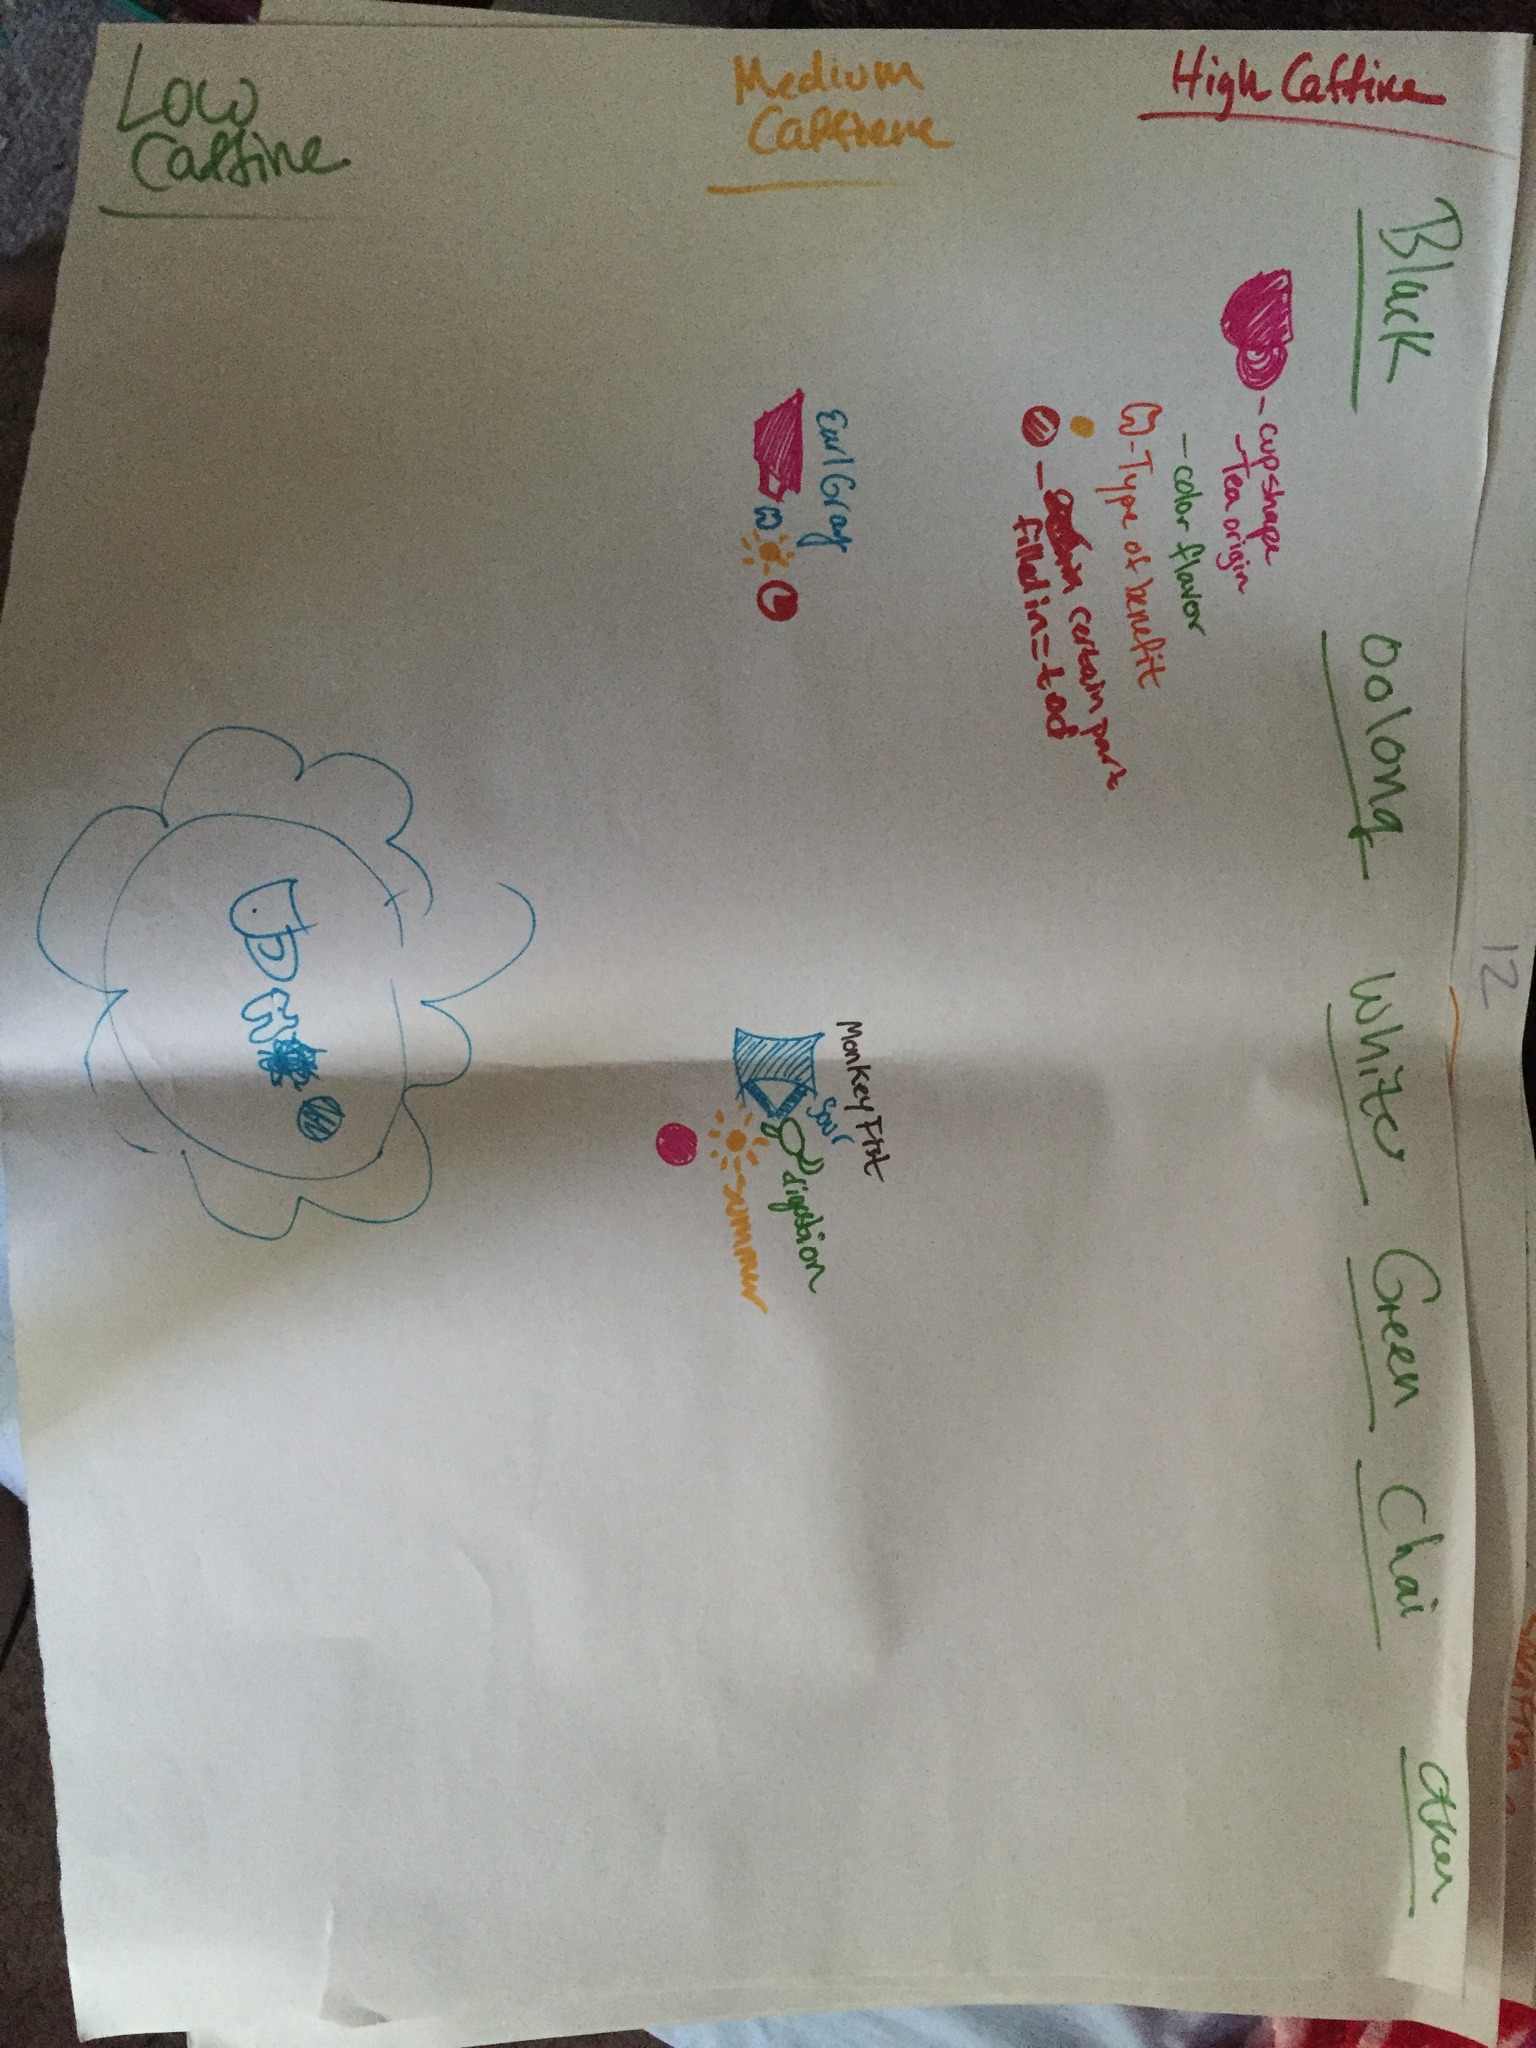 12
Black
Oolong
White
Green
Chai
Other
High Caffine
- cup shape
- Tea origin
- color flavor
- Type of benefit
- certain part
filled in = tod
Medium
Caffiene
Earl Gray
Monkey Fist
Sour
digestion
summer
Low
Caffine